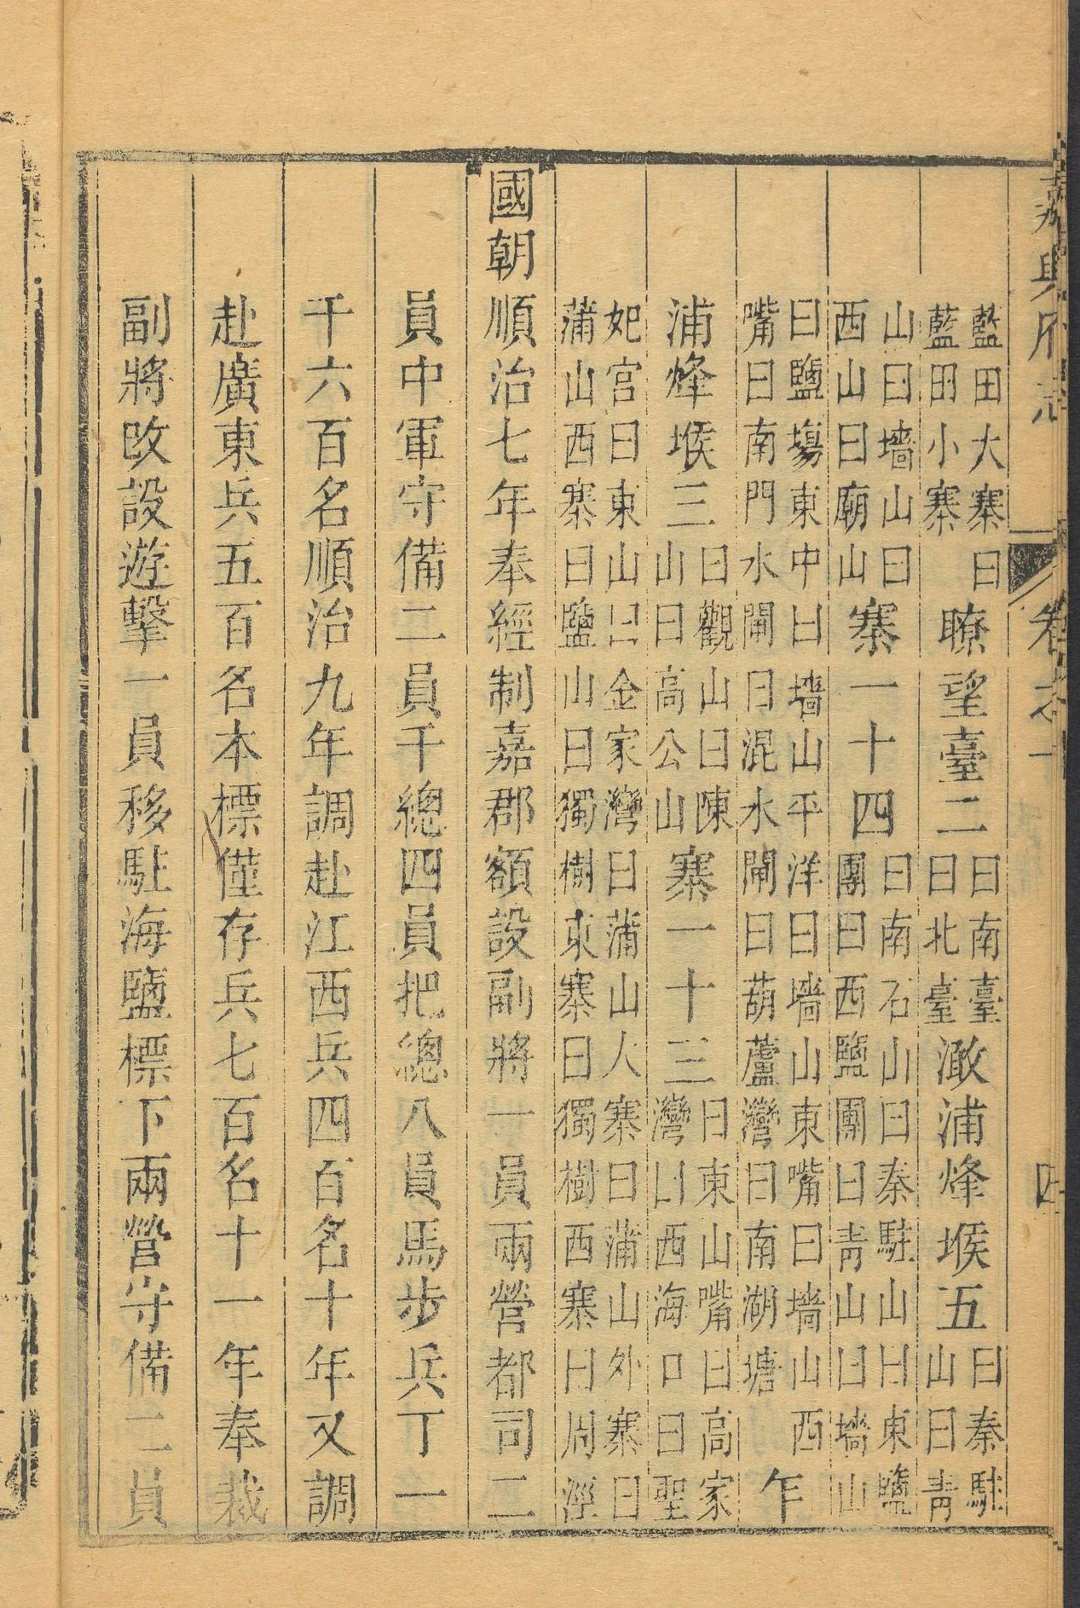 嘉興府志 卷之十 四
藍田大寨曰藍田小寨瞭望臺二曰南臺曰北臺澉浦烽堠五曰秦駐山曰青
山曰墻山曰西山曰廟山寨一十四曰南石山曰秦駐山曰東鹽團曰西鹽團曰青山曰墻山
曰鹽塲東中曰墻山平洋曰墻山東嘴曰墻山西嘴曰南門水閘曰混水閘曰葫蘆灣曰南湖塘乍
浦烽堠三曰觀山曰陳山曰高公山寨一十三曰東山嘴曰高家灣曰西海口曰聖
妃宮曰東山曰金家灣曰蒲山大寨曰蒲山外寨曰蒲山西寨曰鹽山曰獨樹東寨曰獨樹西寨曰周涇
國朝順治七年奉經制嘉郡額設副將一員兩營都司二
員中軍守備二員千總四員把總八員馬步兵丁一
千六百名順治九年調赴江西兵四百名十年又調
赴廣東兵五百名本標僅存兵七百名十一年奉裁
副將改設遊擊一員移駐海鹽標下兩營守備二員